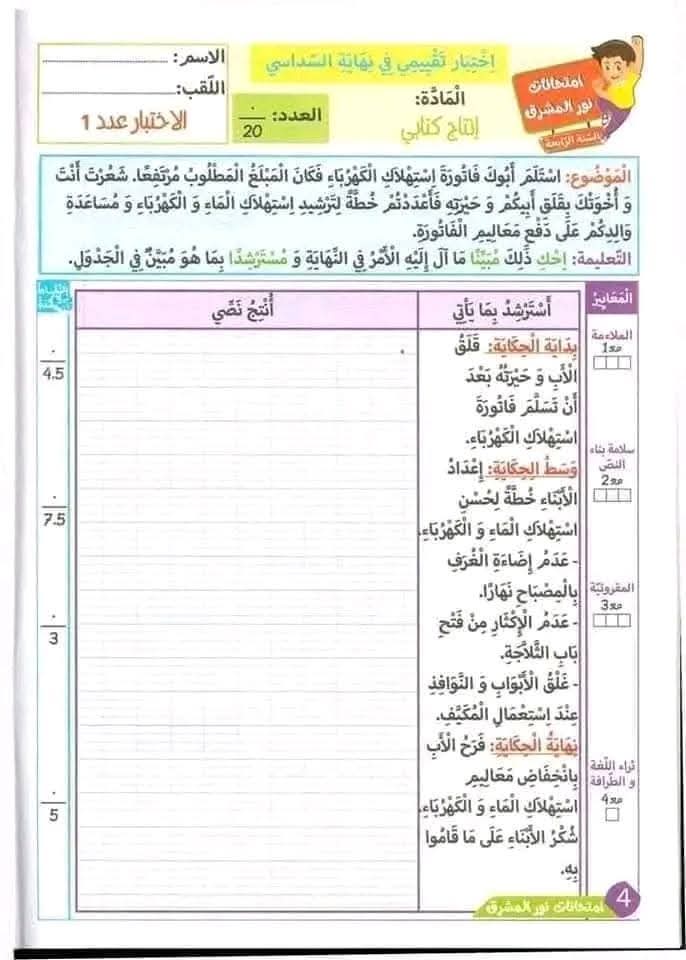 الاسم:
اللّقب:
الاختبار عدد 1
اِخْتِبَار تَقْيِيمِي فِي نِهَايَةِ السّداسي
الْمَادَّة:
إنتاج كتابي
العدد: 20
امتحانات
نور المشرق
السنة الرّابعة
الْمَوْضُوع: اسْتَلَمَ أَبُوكَ فَاتُورَةَ اِسْتِهْلاَكِ الْكَهْرُبَاءِ فَكَانَ الْمَبْلَغُ الْمَطْلُوبُ مُرْتَفِعًا. شَعُرْتَ أَنْتَ
وَ أُخْوَتُكَ بِقَلَقِ أَبِيكُمْ وَ حَيْرَتِهِ فَأَعْدَدْتُمْ خُطَّةً لِتَرْشِيدِ اِسْتِهْلاَكِ الْمَاءِ وَ الْكَهْرُبَاءِ وَ مُسَاعَدَةِ
وَالِدِكُمْ عَلَى دَفْعِ مَعَالِيمِ الْفَاتُورَةِ.
التّعليمة: اِحْكِ ذَلِكَ مُبَيِّنًا مَا آلَ إِلَيْهِ الْأَمْرُ فِي النِّهَايَةِ وَ مُسْتَرْشِدًا بِمَا هُوَ مُبَيَّنٌ فِي الْجَدْوَلِ.
الْمَعَايِيرُ
أَسْتَرْشِدُ بِمَا يَأْتِي
أُنْتِجُ نَصِّي
الملاءمة
مع1
سلامة بناء
النصّ
مع2
المقروئيّة
مع3
ثراء اللّغة
و الطّرافة
مع4
بِدَايَة الْحِكَايَة: قَلَقُ
الْأَبِ وَ حَيْرَتُهُ بَعْدَ
أَنْ تَسَلَّمَ فَاتُورَةَ
اسْتِهْلاَكِ الْكَهْرُبَاءِ.
وَسَطُ الْحِكَايَةِ: إِعْدَادُ
الْأَبْنَاءِ خُطَّةً لِحُسْنِ
اسْتِهْلاَكِ الْمَاءِ وَ الْكَهْرُبَاءِ.
- عَدَمُ إِضَاءَةِ الْغُرَفِ
بِالْمِصْبَاحِ نَهَارًا.
- عَدَمُ الْإِكْثَارِ مِنْ فَتْحِ
بَابِ الثَّلاَّجَةِ.
- غَلْقُ الْأَبْوَابِ وَ النَّوَافِذِ
عِنْدَ اِسْتِعْمَالِ الْمُكَيَّفِ.
نِهَايَةُ الْحِكَايَةِ: فَرَحُ الْأَبِ
بِانْخِفَاضِ مَعَالِيمِ
اسْتِهْلاَكِ الْمَاءِ وَ الْكَهْرُبَاءِ.
شُكْرُ الْأَبْنَاءِ عَلَى مَا قَامُوا
بِهِ.
4.5
7.5
3
5
امتحانات نور المشرق 4